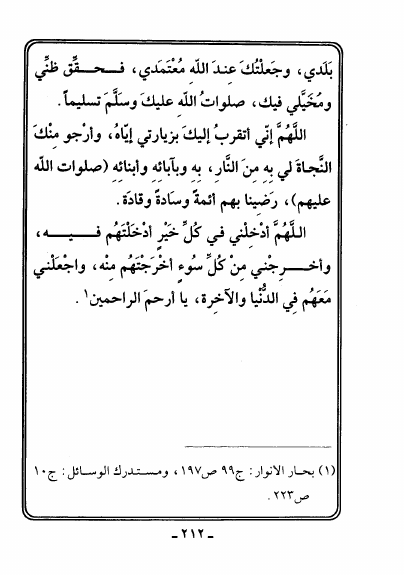 بَلَدي، وجَعلْتُكَ عِندَ اللّهِ مُعْتَمَدي، فَحقِّق ظنِّي
ومُخَيَّلي فيك، صلواتُ اللّهِ عليكَ وسَلَّمَ تسليماً.
اللّهُمَّ إنّي أتقربُ إليكَ بزيارتي إيّاهُ، وأرْجو مِنْكَ
النَّجاةَ لي بِهِ مِنَ النَّارِ، بِهِ وبآبائِهِ وأبنائِهِ (صلوات اللّه
عليهم)، رَضينا بهم أئمةً وسَادةً وقادَة.
اللّهُمَّ أدْخِلْني في كُلِّ خَيْرٍ أدْخَلْتَهُم فيه،
وأخرِجْني مِنْ كُلِّ سُوءٍ أخْرَجْتَهُم مِنْه، واجْعَلْني
مَعَهُم فِي الدُّنْيا والآخِرة، يا أرحمَ الراحمين¹.
(١) بحار الانوار: ج٩٩ ص١٩٧، ومستدرك الوسائل: ج١٠
ص٢٢٣.
ـ ٢١٢ ـ